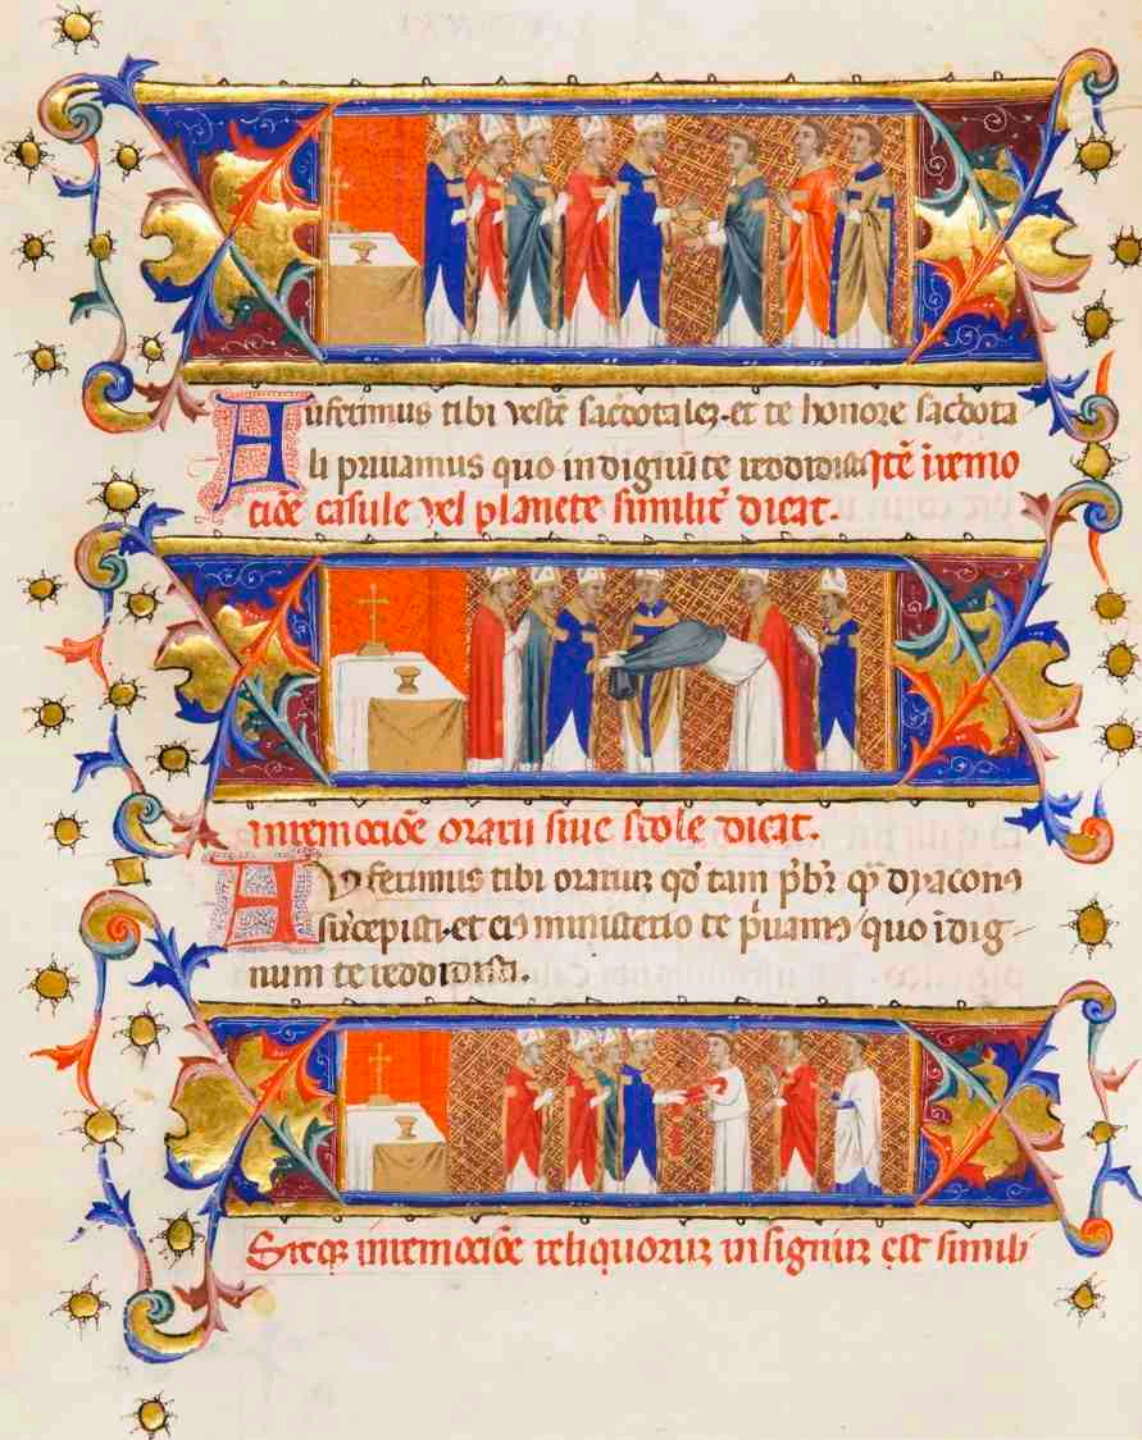 Auferimus tibi vestē sac̄dotalez. et te honore sac̄dota
li priuamus quo indignū te reddidisti Itē ī remo
ciōe casule vel planete similit̄ dicat.
In remociōe orarii siue stole dicat.
Auferimus tibi orariuz qd̄ tam p̄br̄ qͣ dyaconꝰ
suscepisti. et eiꝰ ministerio te p̄uamꝰ quo īdig
num te reddidisti.
Sicqꝫ in remociōe reliquoruz insigniuz est simili